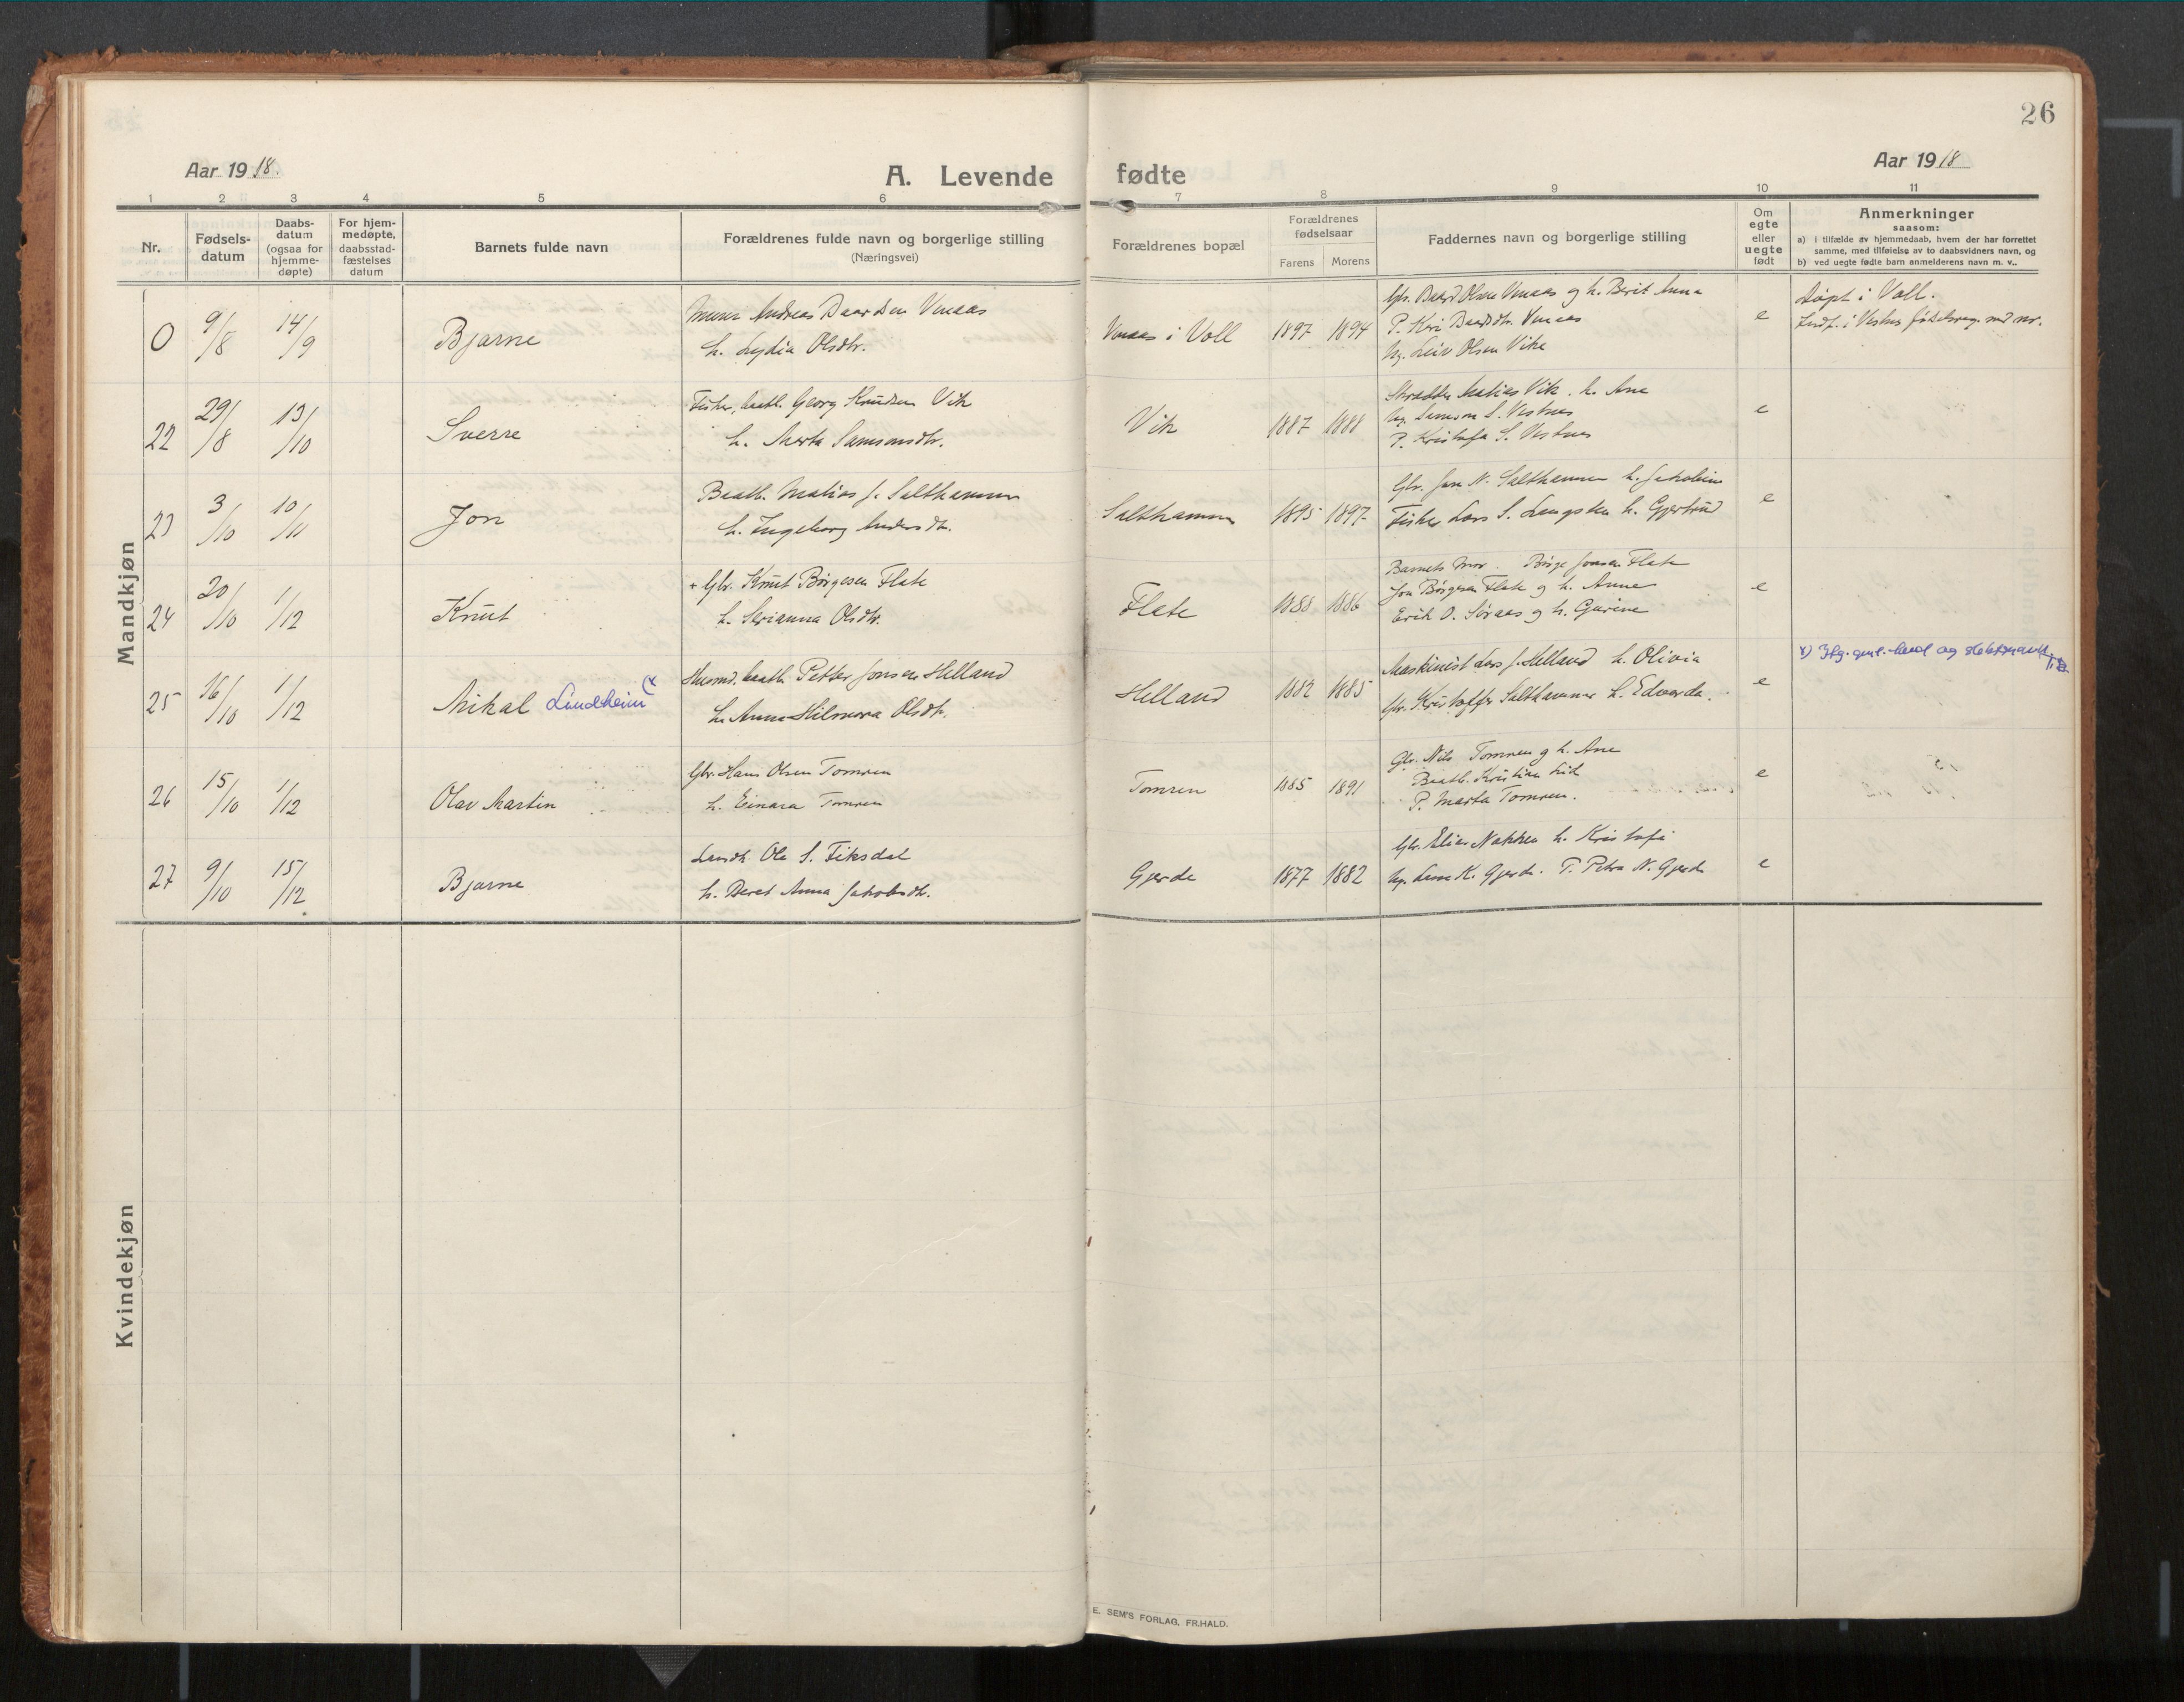 26
Aar 1918.
A. Levende fødte
Aar 1918
1 2 3 4 5 6 7 8 9 10 11
Nr.
Fødsels-
datum
Daabs-
datum
(ogsaa for
hjemme-
døpte)
For hjem-
medøpte,
daabsstad-
fæstelses
datum
Barnets fulde navn
Forældrenes fulde navn og borgerlige stilling
(Næringsvei)
Forældrenes bopæl
Forældrenes
fødselsaar
Farens Morens
Faddernes navn og borgerlige stilling
Om
egte
eller
uegte
født
Anmerkninger
saasom:
a) i tilfælde av hjemmedaab, hvem der har forrettet
samme, med tilføielse av to daabsvidners navn, og
b) ved uegte fødte barn anmelderens navn m. v..
Mandkjøn
0 9/8 14/9 Bjarne
Andreas Venaas
h. Lydia Olsdtr.
i Voll 1897 1894
Gbr. Baard Olsen Venaas og h. Berit Anna
P. Kari Baardsdtr. Venaas
Ug. Leiv Olsen Vike
e
Døpt i Voll.
22 29/8 13/10 Sverre
Fisker, Georg Knudsen Vik
h. Marta Samsonsdtr.
Vik 1887 1888
Skrædder Matias Vik. h. Ane
Ug. Samson S. Vestnes
P. Kristofa S. Vestnes
e
23 3/10 10/11 Jon
Baatb. Matias J. Salthammer
h. Ingeborg Andersdtr.
Salthammer 1895 1897
Gbr. Jon N. Salthammer h. Jakobine
Fisker Lars S. h. Gjertrud
e
24 20/10 1/12 Knut
+ Gbr. Knut Børgesen Flate
h. Serianna Olsdtr.
Flate 1888 1886
Barnets Mor. Børge Jonsen Flate
Jon Børgesen Flate og h. Anne
Erik O. Søraas og h. Gurine
e
25 16/10 1/12 Mikal Lundheim (x
Husmd. baatb. Petter Jonsen Helland
h. Anna Hilmora Olsdtr.
Helland 1882 1885
Maskinist Lars J. Helland h. Olivia
Gbr. Kristoffer Salthammer h. Edvarda.
e
26 15/10 1/12 Olav Martin
Gbr. Hans Olsen Tomren
h. Einara Tomren
Tomren 1885 1891
Gbr. Nils Tomren og h. Ane
Baatb. Kristian
P. Marta Tomren.
e
27 9/10 15/12 Bjarne
Landh. Ole S. Fiksdal
h. Beret Anna Jakobsdtr.
Gjerde 1877 1882
Gbr. Elias Nakken h. Kristofa
K. Gjerde. P. Petra N. Gjerde
e
Kvindekjøn
E. SEM'S FORLAG, FR.HALD.